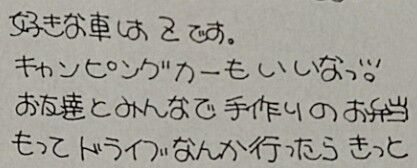 好きな車はZです。
キャンピングカーもいいなっ!!
お友達とみんなで手作りのお弁当
もってドライブなんか行ったらきっと